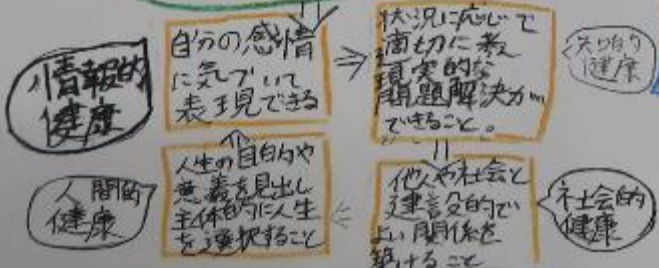 情報的
健康
自分の感情
に気づいて
表現できる
状況に応じて
適切に考え
現実的な
問題解決が
できること。
知的
健康
人間的
健康
人生の目的や
意義を見出し
主体的に人生
を選択すること
他人や社会と
建設的で
よい関係を
築けること
社会的
健康